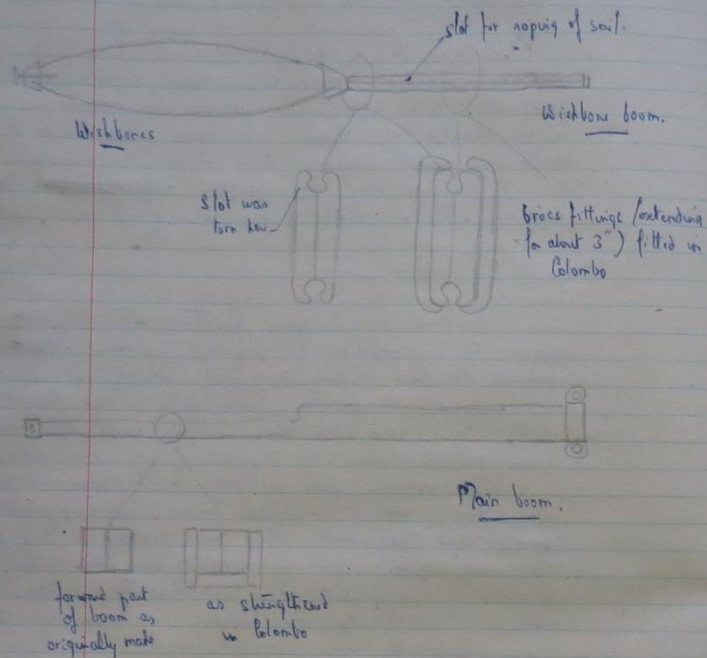 slot for roping of sail.
Wishbones
Wishbone boom.
Slot was
torn here
Brass fittings (extending
for about 3") fitted in
Colombo
Main boom.
forward part
of boom as
originally made
as strengthened
in Colombo